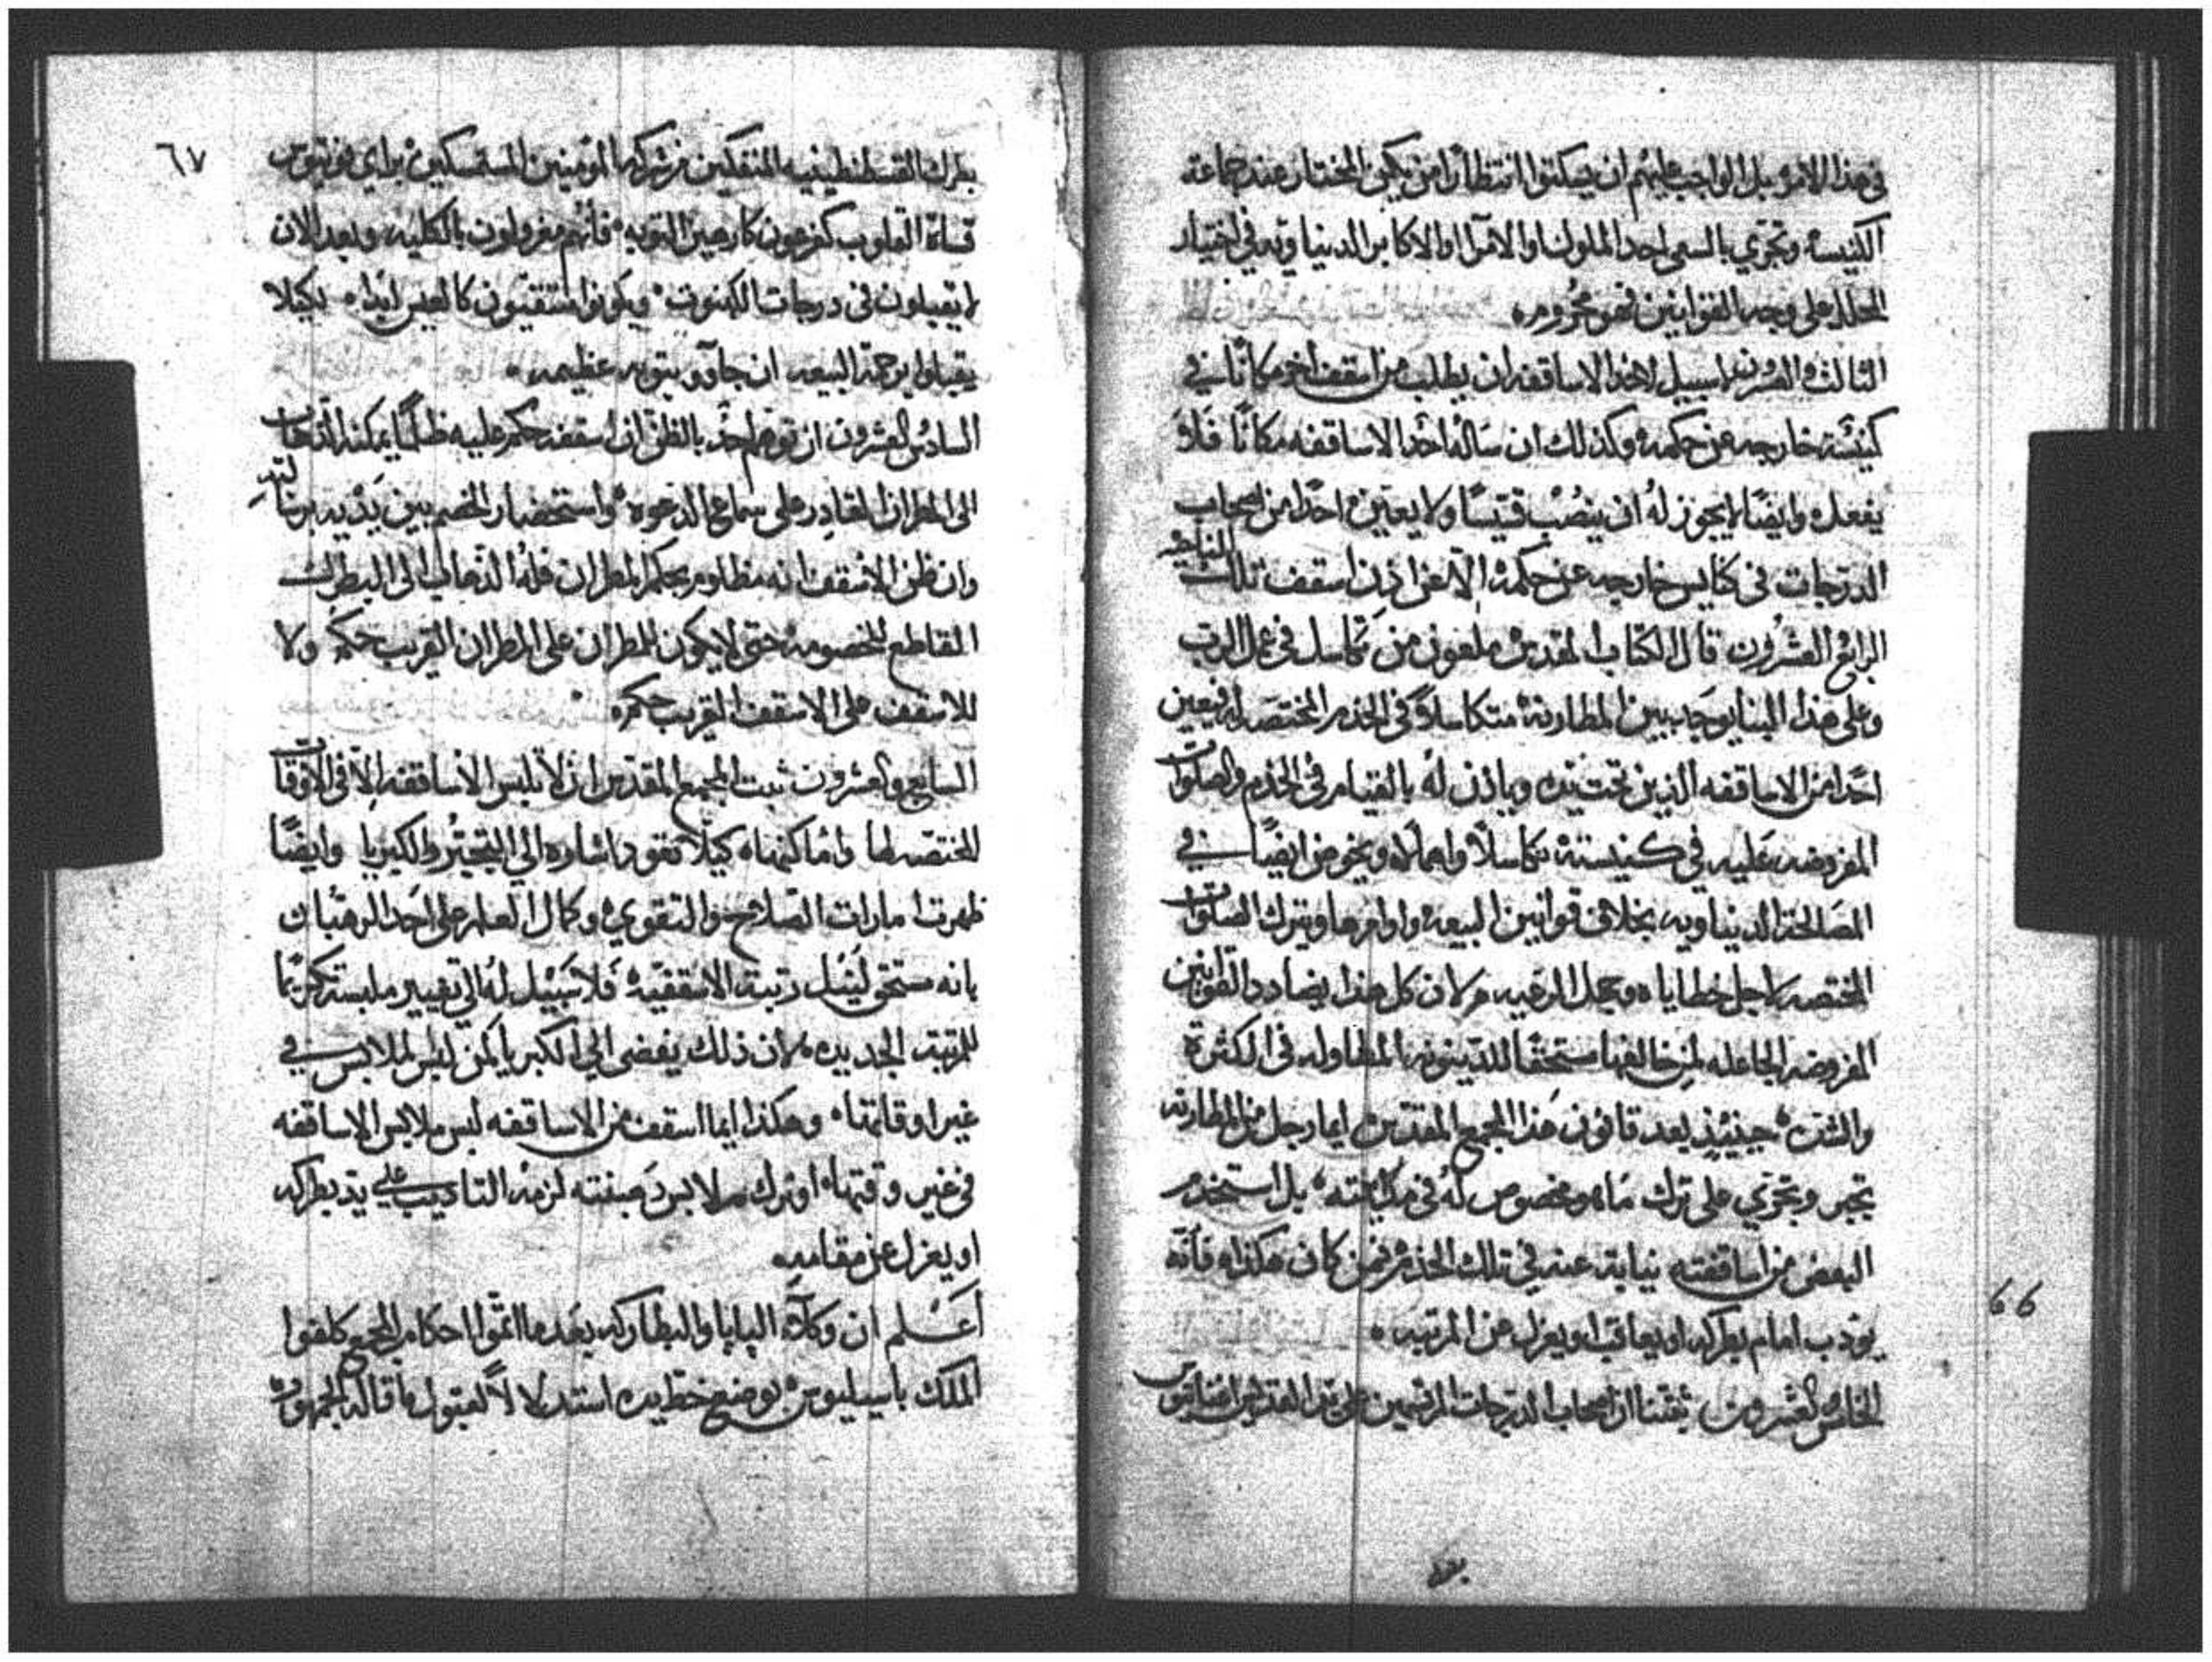 في هذا الامر بل الواجب عليهم ان يسكتوا انتظارا من يكون المختار عند جماعة
الكنيسه وتجري بالسعي احد الملوك او الامرآ او الاكابر الدنياويه في اختيار
على وجه القوانين فهو محروم
الثالث والعشرون لا سبيل لاحد الاساقفه ان يطلب من اسقف اخر مكانًا في
كنيسة خارجه عن حكمه وكذلك ان ساله احد الاساقفه مكانًا فلا
يفعل وايضًا لا يجوز له ان ينصب قسيسًا ولا يعين احدًا من اصحاب
الدرجات في كنايس خارجه عن حكمه الا عن اذن اسقف تلك الناحيه
الرابع والعشرون قال الكتاب المقدس ملعون من تكاسل في عمل الرب
وعلى هذا البنا يوجب بين المطارنة متكاسلاً في الخدم المختصه له فيعين
احدًا من الاساقفه الذين تحت يده وياذن له بالقيام في الخدم والصلوات
المفروضه عليه في كنيسته تكاسلاً واهمالاً ويخوض ايضًا في
المصالحة الدنياويه بخلاف قوانين البيعه واوامرها ويترك الصلوات
المختصه لاجل خطاياه الرعيه لان كل هذا يضادد القوانين
المفروضه الجاعله لمن خالفها مستحقًا للدينونه المطاوله في الكثرة
والشده حينيذ بعد قانون هذا المجمع المقدس ايما رجل من المطارنه
تجبر وتجري على ترك ما هو مخصوص له في بل استخدم
البعض من اساقفته نيابة عنه في تلك الخدم فمن كان هكذا فانه
يودب امام بطركه او يعاقب او يعزل عن المرتبه
الخامس والعشرون ثبتنا ان اصحاب الدرجات المرتسمين على يد القديس اغناتيوس
بعد
٦٦
٦٧
بطرك القسطنطينيه المنفكين من شركه المومنين المستمسكين براي فوتيوس
قساة القلوب كفرعون كارهين التوبه فانهم مغرولون بالكليه وبعد الان
لا يقبلون في درجات الكهنوت ويكونوا كالعيس ابدا لكيلا
يقبلوا برحمة البيعه ان جآوو بتوبه عظيمه
السادس والعشرون ان توهم احد بالظن ان اسقفه حكم عليه ظلمًا يمكنه الذهاب
الى المطران القادر على سماع الدعوه واستحضار الخصم بين يديه
وان ظن الاسقف انه مظلوم بحكم المطران فله الذهاب الى البطرك
القاطع للخصومه حتى لا يكون للمطران على المطران القريب حكم ولا
للاسقف على الاسقف القريب حكم
السابع والعشرون ثبت المجمع المقدس ان لا تلبس الاساقفه الا في الاوقات
المختصه لها واماكنها كيلا تعود اشاره الى التجبر والكبريا وايضًا
ظهرت امارات الصلاح والتقوى وكمال العلم على احد الرهبان
بانه مستحق لنيل رتبة الاسقفيه فلا سبيل له الى تغيير ملبسه تكريمًا
للمرتبه الجديده لان ذلك يفضي الى الكبريا لمن لبس الملابس في
غير اوقاتها وهكذا ايما اسقف من الاساقفه لبس ملابس الاساقفه
في غير وقتها او ترك ملابس صفته لزمه التاديب على يد بطركه
او يعزل عن مقامه
اعلم ان وكلآء البابا والبطاركه بعد ما اتموا احكام المجمع كلفوا
الملك باسيليوس بوضع خط يده استدلالاً لقبول ما قاله الجمهور